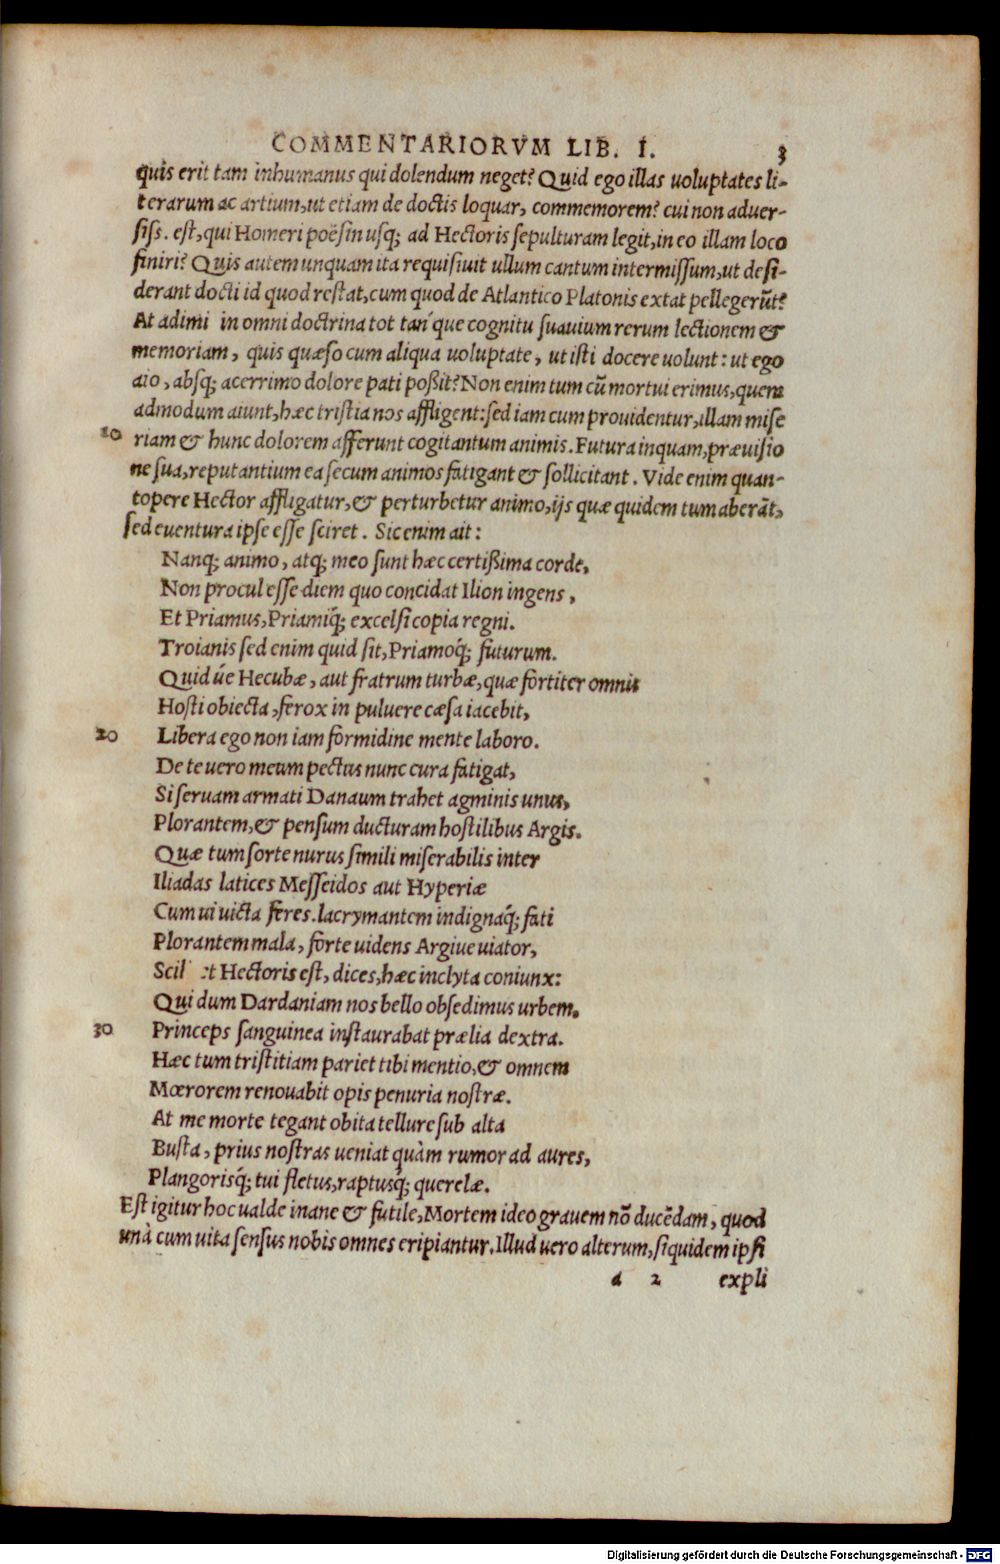 COMMENTARIORVM LIB. I. 3
quis erit tam inhumanus qui dolendum neget? Quid ego illas uoluptates li-
terarum ac artium, ut etiam de doctis loquar, commemorem? cui non aduer-
siss. est, qui Homeri poësin usq; ad Hectoris sepulturam legit, in eo illam loco
finiri? Quis autem unquam ita requisiuit ullum cantum intermissum, ut desi-
derant docti id quod restat, cum quod de Atlantico Platonis extat pellegerūt?
At adimi in omni doctrina tot tanque cognitu suauium rerum lectionem &
memoriam, quis quæso cum aliqua uoluptate, ut isti docere uolunt: ut ego
aio, absq; acerrimo dolore pati poßit? Non enim tum cū mortui erimus, quem
admodum aiunt, hæc tristia nos affligent: sed iam cum prouidentur, illam mise
10 riam & hunc dolorem afferunt cogitantum animis. Futura inquam, præuisio
ne sua, reputantium ea secum animos fatigant & sollicitant. Vide enim quan-
topere Hector affligatur, & perturbetur animo, ijs quæ quidem tum aberāt,
sed euentura ipse esse sciret. Sic enim ait:
Nanq; animo, atq; meo sunt hæc certißima corde,
Non procul esse diem quo concidat Ilion ingens,
Et Priamus, Priamiq́; excelsi copia regni.
Troianis sed enim quid sit, Priamoq́; futurum.
Quid úe Hecubæ, aut fratrum turbæ, quæ fortiter omnis
Hosti obiecta, ferox in puluere cæsa iacebit,
20 Libera ego non iam formidine mente laboro.
De te uero meum pectus nunc cura fatigat,
Si seruam armati Danaum trahet agminis unus,
Plorantem, & pensum ducturam hostilibus Argis.
Quæ tum sorte nurus simili miserabilis inter
Iliadas latices Messeidos aut Hyperiæ
Cum ui uicta feres. lacrymantem indignaq́; fati
Plorantem mala, forte uidens Argiue uiator,
Scil et Hectoris est, dices, hæc inclyta coniunx:
Qui dum Dardaniam nos bello obsedimus urbem.
30 Princeps sanguinea instaurabat prælia dextra.
Hæc tum tristitiam pariet tibi mentio, & omnem
Mœrorem renouabit opis penuria nostræ.
At me morte tegant obita tellure sub alta
Busta, prius nostras ueniat quàm rumor ad aures,
Plangorisq́; tui fletus, raptusq́; querelæ.
Est igitur hoc ualde inane & futile, Mortem ideo grauem nō ducēdam, quod
unà cum uita sensus nobis omnes eripiantur. Illud uero alterum, siquidem ipsi
a 2 expli
Digitalisierung gefördert durch die Deutsche Forschungsgemeinschaft - DFG